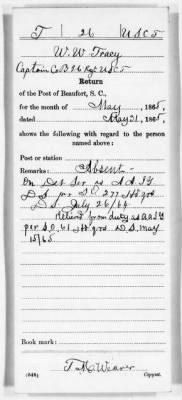 T 26 U S C T
W. W. Tracy
Captain Co B 26 Rgt USCT
Return
of the Post of Beaufort, S. C.,
for the month of May, 1865,
dated May 31, 1865,
shows the following with regard to the person
named above:
Post or station
Remarks: Absent
On Det Ser as A A I G
D S per S.O. 277 Hd Qrs
D S. July 26/64
Relievd from duty as A A I G
per S.O. 61 Hd Qrs D.S. May
15/65.
Book mark:
T. M. Weaver
(548) Copyist.